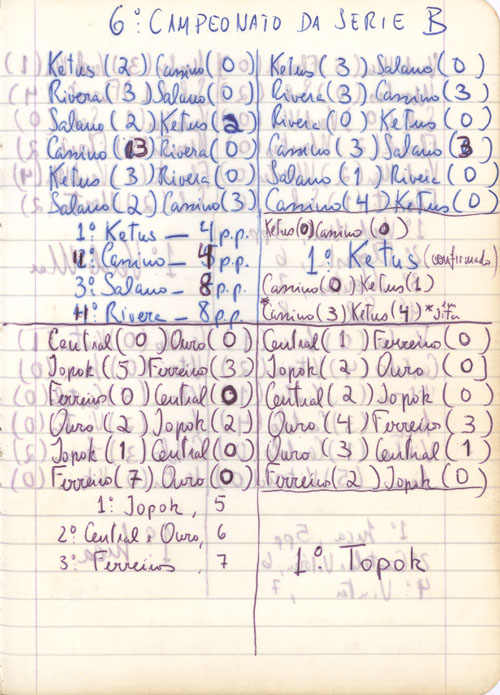 6º CAMPEONATO DA SERIE B
Ketus (2) Cassino (0)
Rivera (3) Salano (0)
Salano (2) Ketus (2)
Cassino (3) Rivera (0)
Ketus (3) Rivera (0)
Salano (2) Cassino (3)
1º Ketus — 4 p.p.
1º Cassino — 4 p.p.
3º Salano — 8 p.p.
4º Rivera — 8 p.p.
Ketus (3) Salano (0)
Rivera (3) Cassino (3)
Rivera (0) Ketus (0)
Cassino (3) Salano (3)
Salano (1) Rivera (0)
Cassino (4) Ketus (0)
Ketus (0) Cassino (0)
1º Ketus (confirmado)
Cassino (0) Ketus (1)
*Cassino (3) Ketus (4)
Central (0) Ouro (0)
Topok (5) Ferreiro (3)
Ferreiro (0) Central (0)
Ouro (2) Topok (2)
Topok (1) Central (0)
Ferreiro (7) Ouro (0)
1º Topok, 5
2º Central e Ouro, 6
3º Ferreiros, 7
Central (1) Ferreiro (0)
Topok (2) Ouro (0)
Central (2) Topok (0)
Ouro (4) Ferreiro (3)
Ouro (3) Central (1)
Ferreiro (2) Topok (0)
1º Topok